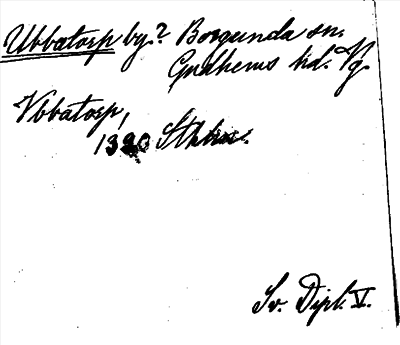 Ubbatorp by? Borgunda sn.
Gudhems hd. Vg.
Vbbatorp,
1320 Sthlm.
Sv. Dipl. V.